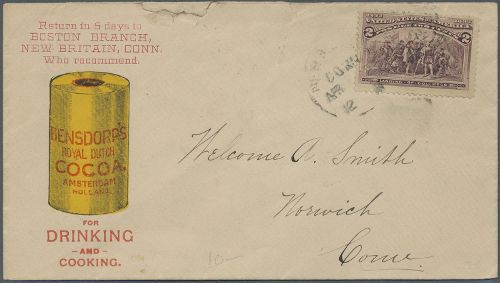 Return in 5 days to
BOSTON BRANCH,
NEW BRITAIN, CONN.
Who recommend.
BENSDORP'S
ROYAL DUTCH
COCOA.
AMSTERDAM
HOLLAND.
FOR
DRINKING
—AND—
COOKING.
1492 1892
UNITED STATES OF AMERICA
2 2
LANDING OF COLUMBUS
CONN
12
Welcome A. Smith
Norwich
Conn.
10—